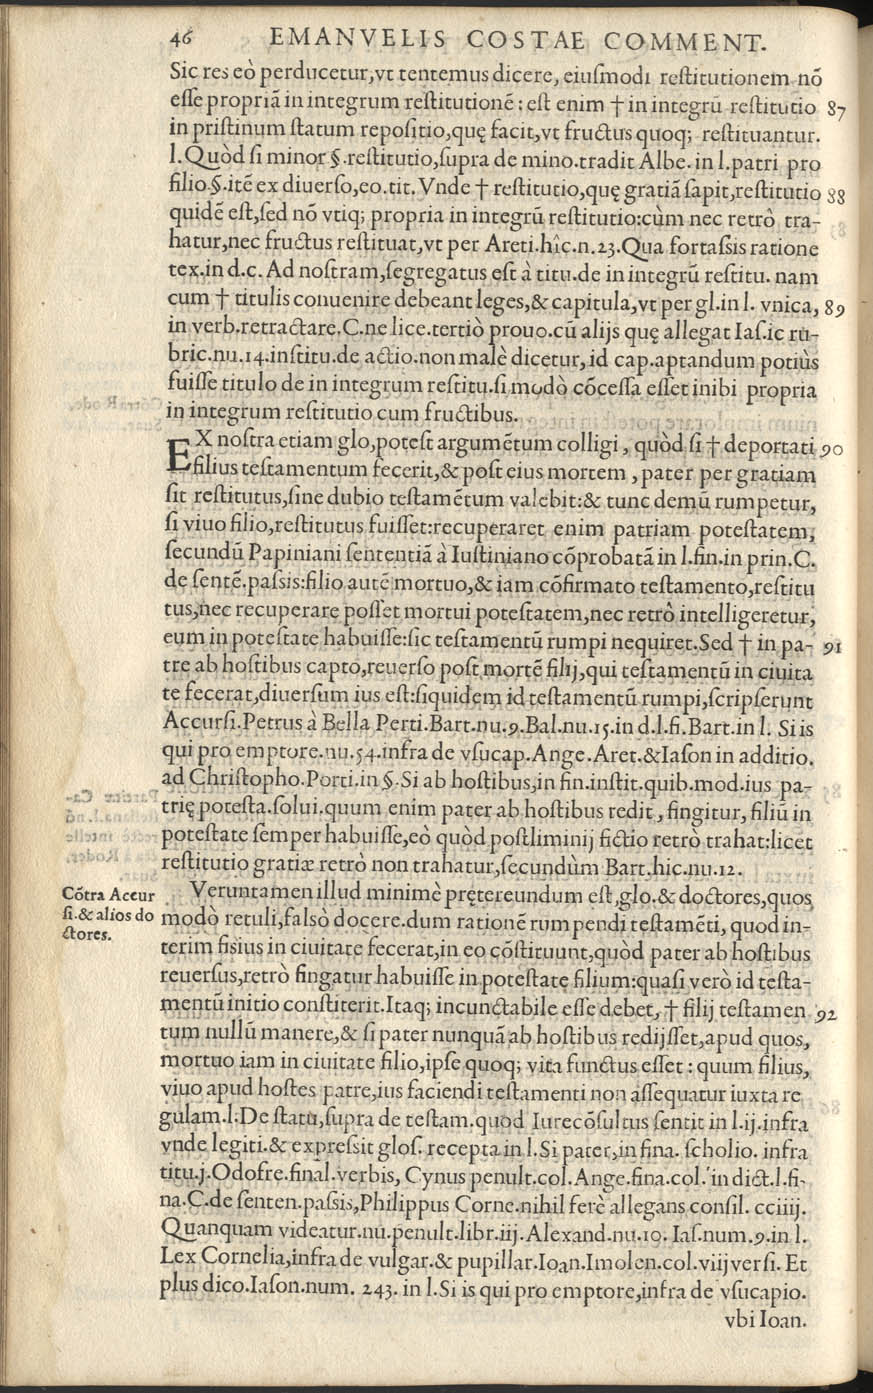 46 EMANVELIS COSTAE COMMENT.
Sic res eò perducetur,vt tentemus dicere, eiuſmodi reſtitutionem nõ
eſſe propriã in integrum reſtitutionẽ: eſt enim † in integrũ reſtitutio 87
in priſtinum ſtatum repoſitio,quę facit,vt fructus quoq; reſtituantur.
l.Quòd ſi minor §.reſtitutio,ſupra de mino.tradit Albe. in l.patri pro
filio.§.itẽ ex diuerſo,eo.tit. Vnde † reſtitutio,quę gratiã ſapit,reſtitutio 88
quidẽ eſt,ſed nõ vtiq; propria in integrũ reſtitutio:cùm nec retrò tra-
hatur,nec fructus reſtituat,vt per Areti.hîc.n.23.Qua fortaſsis ratione
tex.in d.c. Ad noſtram,ſegregatus eſt à titu.de in integrũ reſtitu. nam
cum † titulis conuenire debeant leges,& capitula,vt per gl.in l. vnica, 89
in verb.retractare.C.ne lice.tertiò prouo.cũ alijs quę allegat Iaſ.ic ru-
bric.nu.14.inſtitu.de actio.non malè dicetur,id cap.aptandum potiùs
fuiſſe titulo de in integrum reſtitu.ſi modò cõceſſa eſſet inibi propria
in integrum reſtitutio cum fructibus.
EX noſtra etiam glo,poteſt argumẽtum colligi, quòd ſi † deportati 90
filius teſtamentum fecerit,& poſt eius mortem, pater per gratiam
ſit reſtitutus,ſine dubio teſtamẽtum valebit:& tunc demũ rumpetur,
ſi viuo filio,reſtitutus fuiſſet:recuperaret enim patriam poteſtatem,
ſecundũ Papiniani ſententiã à Iuſtiniano cõprobatã in l.fin.in prin.C.
de ſentẽ.paſsis:filio autẽ mortuo,& iam cõfirmato teſtamento,reſtitu
tus,nec recuperare poſſet mortui poteſtatem,nec retrò intelligeretur,
eum in poteſtate habuiſſe:ſic teſtamentũ rumpi nequiret.Sed † in pa- 91
tre ab hoſtibus capto,reuerſo poſt mortẽ filij,qui teſtamentũ in ciuita
te fecerat,diuerſum ius eſt:ſiquidem id teſtamentũ rumpi,ſcripſerunt
Accurſi.Petrus à Bella Perti.Bart.nu.9.Bal.nu.15.in d.l.fi.Bart.in l. Si is
qui pro emptore.nu.54.infra de vſucap.Ange.Aret.&Iaſon in additio.
ad Chriſtopho.Porti.in §.Si ab hoſtibus,in fin.inſtit.quib.mod.ius pa-
trię poteſta.ſolui.quum enim pater ab hoſtibus redit, fingitur, filiũ in
poteſtate ſemper habuiſſe,eò quòd poſtliminij fictio retrò trahat:licet
reſtitutio gratiæ retrò non trahatur,ſecundùm Bart.hic.nu.12.
Cõtra Accur
ſi.& alios do
ctores.
Veruntamen illud minimè prętereundum eſt,glo.& doctores,quos
modò retuli,falsò docere.dum rationẽ rumpendi teſtamẽti, quod in-
terim fisius in ciuitate fecerat,in eo cõſtituunt,quòd pater ab hoſtibus
reuerſus,retrò fingatur habuiſſe in poteſtate filium:quaſi verò id teſta-
mentũ initio conſtiterit.Itaq; incunctabile eſſe debet, † filij teſtamen 92
tum nullũ manere,& ſi pater nunquã ab hoſtibus redijſſet,apud quos,
mortuo iam in ciuitate filio,ipſe quoq; vita functus eſſet: quum filius,
viuo apud hoſtes patre,ius faciendi teſtamenti non aſſequatur iuxta re
gulam.l.De ſtatu,ſupra de teſtam.quod Iurecõſultus ſentit in l.ij.infra
vnde legiti.& expreſsit gloſ. recepta in l.Si pater,in fina. ſcholio. infra
titu.j.Odofre.final.verbis, Cynus penult.col.Ange.fina.col. in dict.l.fi-
na.C.de ſenten.paſsis,Philippus Corne.nihil ferè allegans conſil. cciiij.
Quanquam videatur.nu.penult.libr.iij.Alexand.nu.10. Iaſ.num.9.in l.
Lex Cornelia,infra de vulgar.& pupillar.Ioan.Imolen.col.viij verſi. Et
plus dico.Iaſon.num. 243. in l.Si is qui pro emptore,infra de vſucapio.
vbi Ioan.